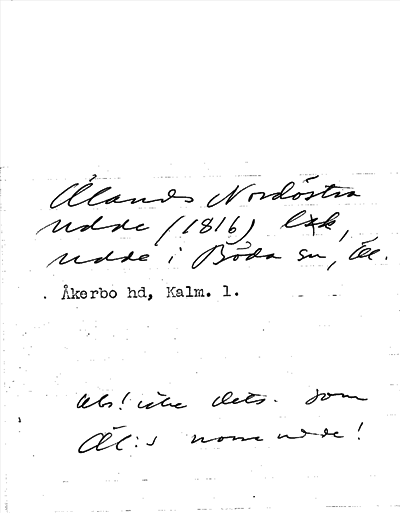 Ölands Nordöstra
udde (1816) lxk,
udde i Böda sn, Öl.
Åkerbo hd, Kalm. l.
Obs! icke dets. som
Öl:s norra udde!